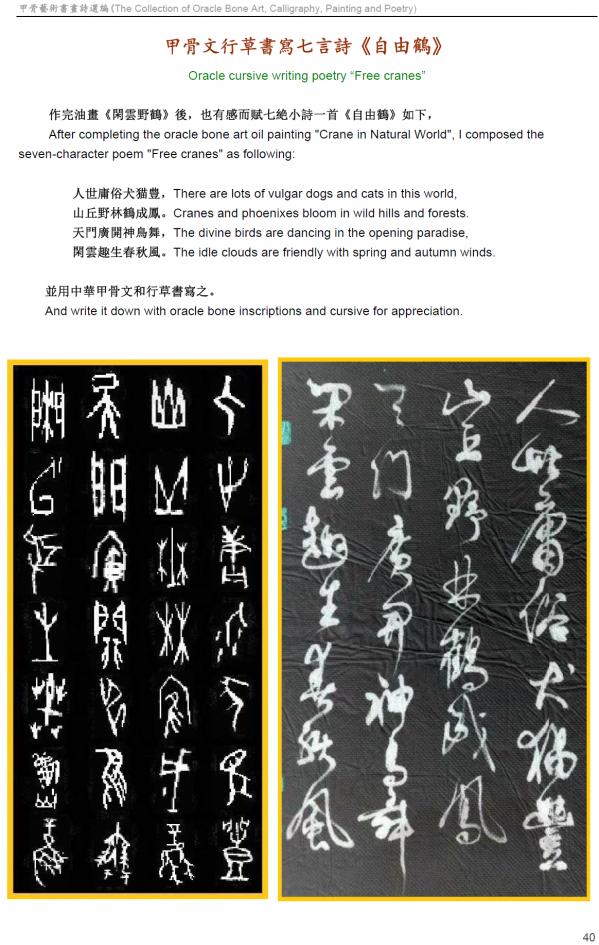 甲骨藝術書畫詩選編 (The Collection of Oracle Bone Art, Calligraphy, Painting and Poetry)
甲骨文行草書寫七言詩《自由鶴》
Oracle cursive writing poetry “Free cranes”
作完油畫《閑雲野鶴》後，也有感而賦七絶小詩一首《自由鶴》如下，
After completing the oracle bone art oil painting "Crane in Natural World", I composed the
seven-character poem "Free cranes" as following:
人世庸俗犬猫豊，There are lots of vulgar dogs and cats in this world,
山丘野林鶴成鳳。Cranes and phoenixes bloom in wild hills and forests.
天門廣開神鳥舞，The divine birds are dancing in the opening paradise,
閑雲趣生春秋風。The idle clouds are friendly with spring and autumn winds.
並用中華甲骨文和行草書寫之。
And write it down with oracle bone inscriptions and cursive for appreciation.
人世庸俗犬猫豊
山丘野林鶴成鳳
天门廣開神鳥舞
閑雲趣生春秋風
40